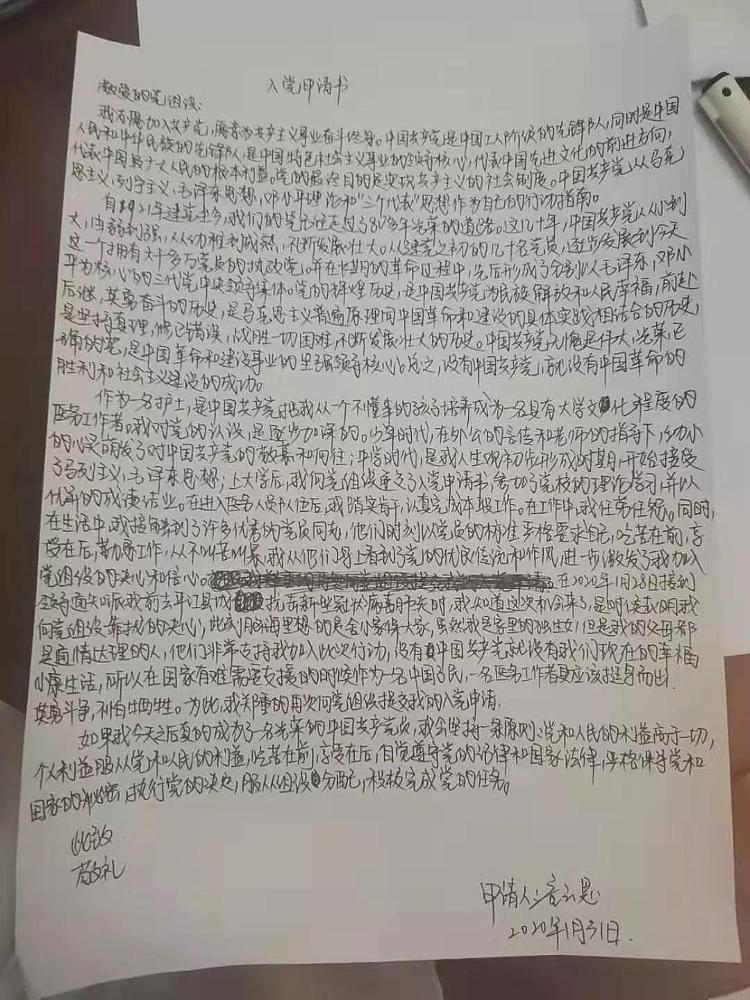 入党申请书
敬爱的党组织:
我志愿加入共产党,愿意为共产主义事业奋斗终身。中国共产党是中国工人阶级的先锋队,同时是中国
人民和中华民族的先锋队,是中国特色社会主义事业的领导核心,代表中国先进文化的前进方向,
代表中国最广大人民的根本利益。党的最终目的是实现共产主义的社会制度。中国共产党以马克
思主义,列宁主义,毛泽东思想,邓小平理论和“三个代表”思想作为自己的行动指南。
自1921年建党至今,我们的党已经走过了80多年光荣的道路。这几十年,中国共产党从小到
大,由弱到强,从幼稚到成熟,不断发展壮大。从建党之初的几十名党员,逐步发展到今天
这一个拥有六千多万党员的执政党。并在长期的革命过程中,先后形成了分别以毛泽东,邓小
平为核心的三代党中央领导集体。党的辉煌历史,是中国共产党为民族解放和人民幸福,前赴
后继,英勇奋斗的历史,是马克思主义普遍原理同中国革命和建设的具体实践相结合的历史
是坚持真理,修正错误,战胜一切困难,不断发展壮大的历史。中国共产党无愧是伟大,光荣,正
确的党,是中国革命和建设事业的坚强领导核心。总之,没有中国共产党,就没有中国革命的
胜利和社会主义建设的成功。
作为一名护士,是中国共产党把我从一个不懂事的孩子培养成为一名具有大学文化程度的
医务工作者。我对党的认识,是逐步加深的。少年时代,在外公的言传和老师的指导下,幼小
的心灵萌发了对中国共产党的敬慕和向往;中学时代,是我人生观初步形成时期,开始接受
了马列主义,毛泽东思想;上大学后,我向党组织递交了入党申请书,参加了党校的理论学习,并以
优异的成绩结业。在进入医务人员队伍后,我踏实肯干,认真完成本报工作。在工作中,我任劳任怨。同时,
在生活中,我接触到了许多优秀的党员同志,他们时刻以党员的标准严格要求自己,吃苦在前,享
受在后,勤勤恳工作,从不叫苦叫累,我从他们身上看到了党的优良传统和作风,进一步激发了我加入
党组织的决心和信心。在2020年1月28日接到
领导通知派我前去平江县抗击新型冠状病毒肺炎时,我知道这次机会来了,是时候表明我
向党组织靠拢的决心,此刻脑海里想的是舍小家保大家,虽然我是家里的独生女,但是我的父母都
是通情达理的人,他们非常支持我加入此次行动,没有中国共产党就没有我们现在的幸福
小康生活,所以在国家有难需要支援的时候作为一名中国公民,一名医务工作者更应该挺身而出
英勇斗争,不怕牺牲。为此,我郑重的再次向党组织提交我的入党申请。
如果我今天之后真的成为了一名光荣的中国共产党员,我会坚持一条原则:党和人民的利益高于一切,
个人利益服从党和人民的利益,吃苦在前,享受在后,自觉遵守党的纪律和国家法律,严格保守党和
国家的秘密,执行党的决定,服从组织分配,积极完成党的任务。
此致
敬礼
申请人:
2020年1月31日.